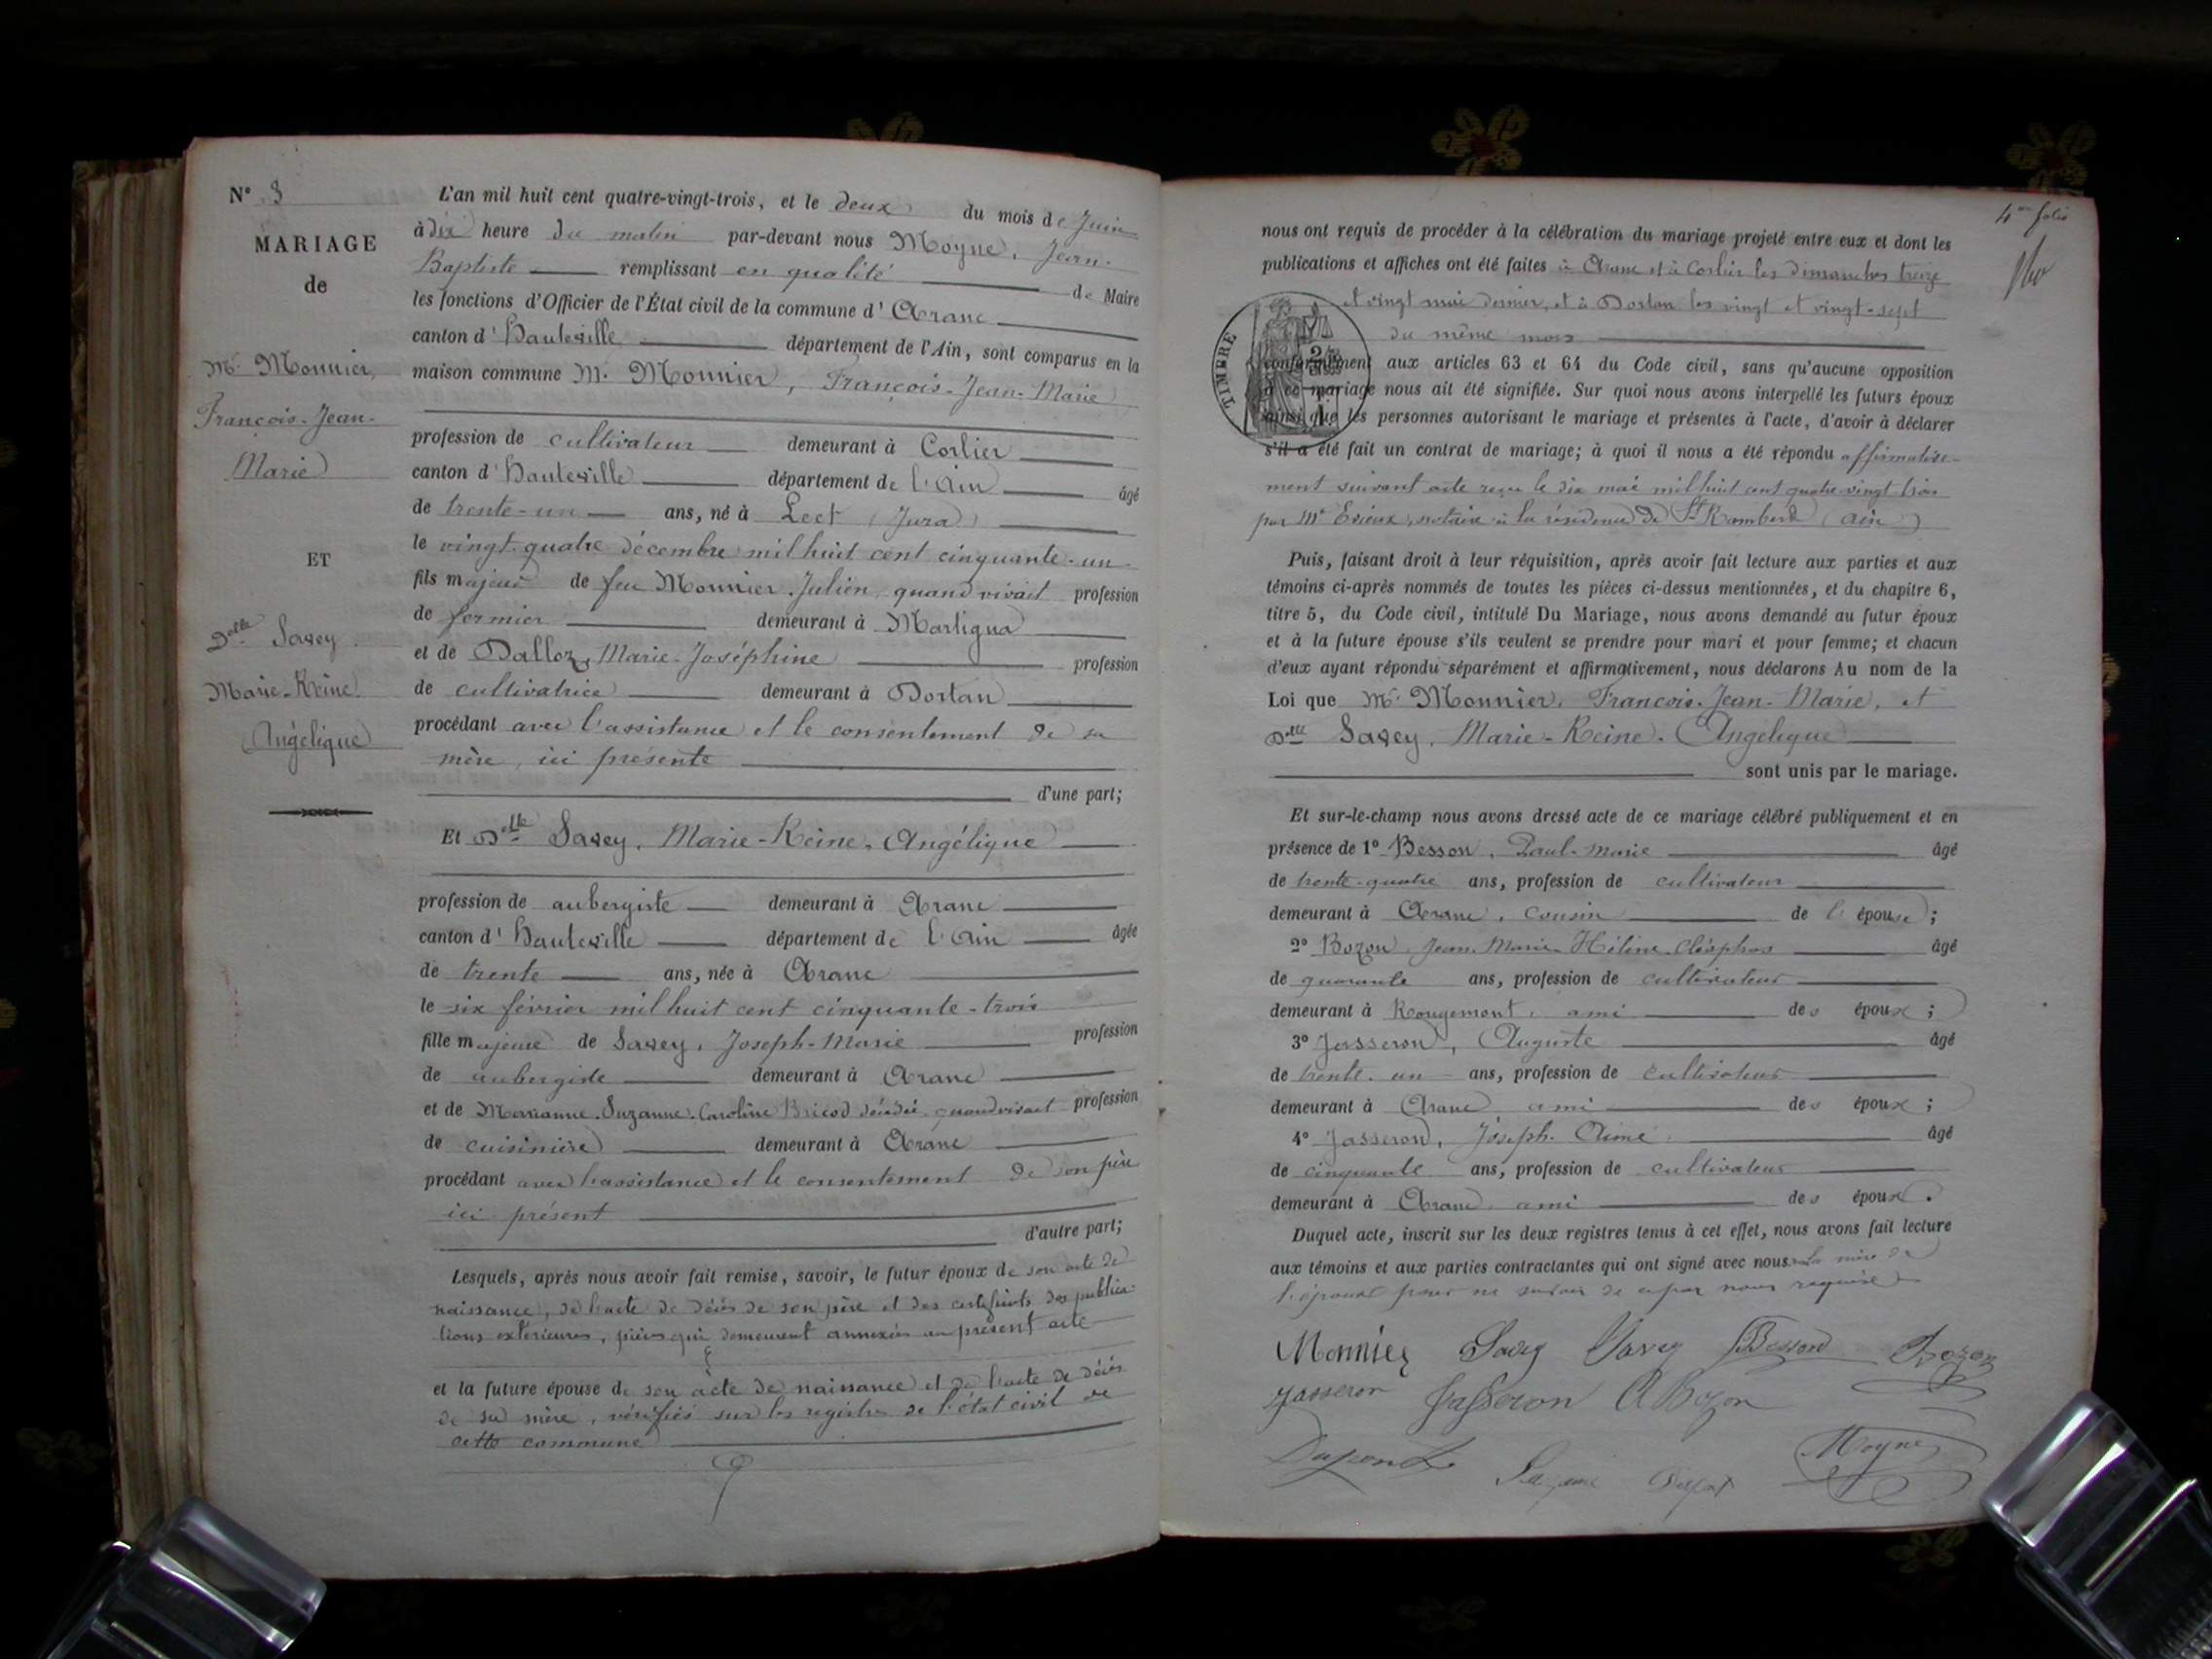 N° 3
MARIAGE
de
Mr. Monnier,
François-Jean-
Marie
ET
Delle Savey
Marie-Reine
Angélique
L'an mil huit cent quatre-vingt-trois, et le deux du mois de Juin
à dix heure du matin par-devant nous Moyne, Jean-
Baptiste remplissant en qualité de Maire
les fonctions d'Officier de l'État civil de la commune d'Aranc
canton d'Hauteville département de l'Ain, sont comparus en la
maison commune M. Monnier, François-Jean-Marie
profession de cultivateur demeurant à Corlier
canton d'Hauteville département de l'Ain âgé
de trente-un ans, né à Lect (Jura)
le vingt-quatre décembre mil huit cent cinquante-un
fils majeur de feu Monnier Julien, quand vivait profession
de fermier demeurant à Martigna
et de Dalloz, Marie-Joséphine profession
de cultivatrice demeurant à Dortan
procédant avec l'assistance et le consentement de sa
mère, ici présente
d'une part;
Et Delle Savey, Marie-Reine, Angélique
profession de aubergiste demeurant à Aranc
canton d'Hauteville département de l'Ain âgée
de trente ans, née à Aranc
le six février mil huit cent cinquante-trois
fille majeure de Savey, Joseph-Marie profession
de aubergiste demeurant à Aranc
et de Marianne-Suzanne-Caroline Bricod décédée quand vivait profession
de cuisinière demeurant à Aranc
procédant avec l'assistance et le consentement de son père
ici présent
d'autre part;
Lesquels, après nous avoir fait remise, savoir, le futur époux de son acte de
naissance, de l'acte de décès de son père et des certificats des publica-
tions extérieures, pièces qui demeurent annexées au présent acte
et la future épouse de son acte de naissance et de l'acte de décès
de sa mère, vérifiés sur les registres de l'état civil de
cette commune
4me folio
nous ont requis de procéder à la célébration du mariage projeté entre eux et dont les
publications et affiches ont été faites à Aranc et à Corlier les dimanches treize
et vingt mai dernier, et à Dortan les vingt et vingt-sept
du même mois
TIMBRE
conformément aux articles 63 et 64 du Code civil, sans qu'aucune opposition
à ce mariage nous ait été signifiée. Sur quoi nous avons interpellé les futurs époux
ainsi que les personnes autorisant le mariage et présentes à l'acte, d'avoir à déclarer
s'il a été fait un contrat de mariage; à quoi il nous a été répondu affirmative-
ment suivant acte reçu le dix mai mil huit cent quatre-vingt-trois
par Me notaire à la résidence de St Rambert (Ain)
Puis, faisant droit à leur réquisition, après avoir fait lecture aux parties et aux
témoins ci-après nommés de toutes les pièces ci-dessus mentionnées, et du chapitre 6,
titre 5, du Code civil, intitulé Du Mariage, nous avons demandé au futur époux
et à la future épouse s'ils veulent se prendre pour mari et pour femme; et chacun
d'eux ayant répondu séparément et affirmativement, nous déclarons Au nom de la
Loi que Mr. Monnier, François-Jean-Marie, et
Delle Savey, Marie-Reine-Angélique
sont unis par le mariage.
Et sur-le-champ nous avons dressé acte de ce mariage célébré publiquement et en
présence de 1° Besson, Paul-Marie âgé
de trente-quatre ans, profession de cultivateur
demeurant à Aranc, cousin de l'épouse;
2° Bozon Jean-Marie-Hélène-Cléophas âgé
de quarante ans, profession de cultivateur
demeurant à Rougemont, ami des époux;
3° Jasseron, Auguste âgé
de trente-un ans, profession de cultivateur
demeurant à Aranc, ami des époux;
4° Jasseron, Joseph-Aimé âgé
de cinquante ans, profession de cultivateur
demeurant à Aranc, ami des époux.
Duquel acte, inscrit sur les deux registres tenus à cet effet, nous avons fait lecture
aux témoins et aux parties contractantes qui ont signé avec nous la mère de
l'époux pour ne savoir de ce par nous requise
Monnier Savey Savey Besson Bozon
Jasseron Jasseron A Bozon
Dupont Moyne